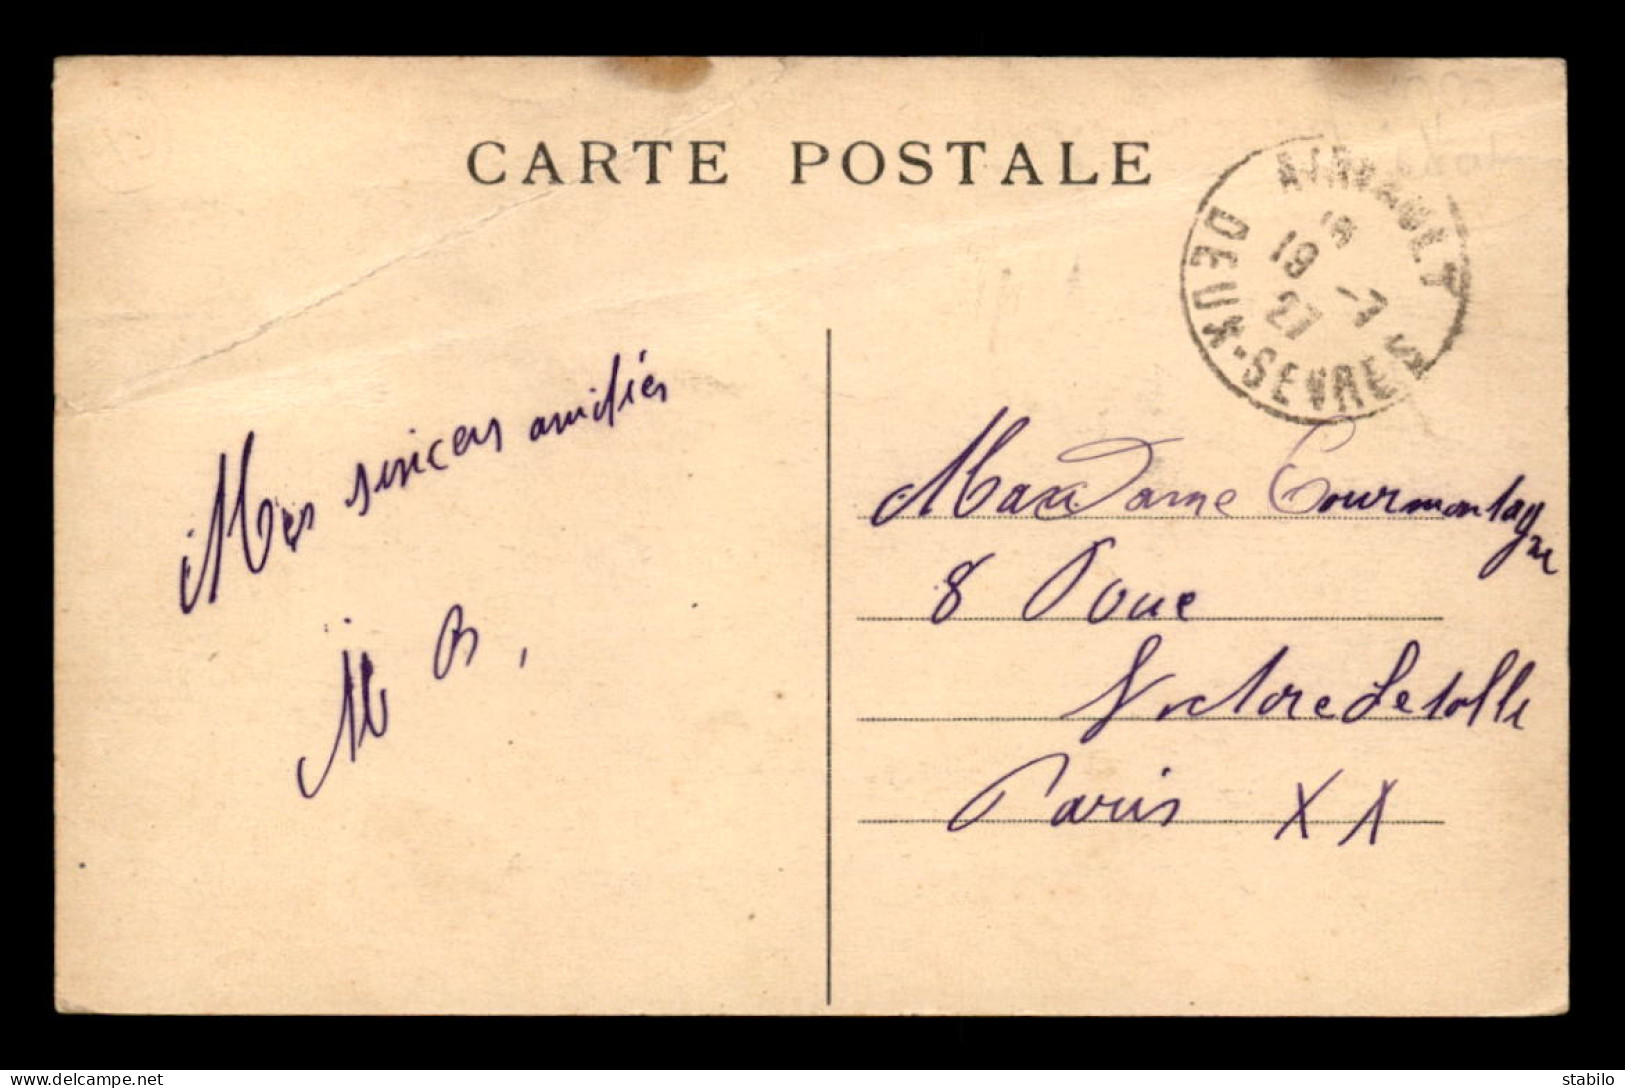 CARTE POSTALE
AIRVAULT
18
19 -7
27
DEUX-SEVRES
Mes sincers amitiés
M B,
Madame Courmontagne
8 Roue
Victore Letolle
Paris XX
stabilo